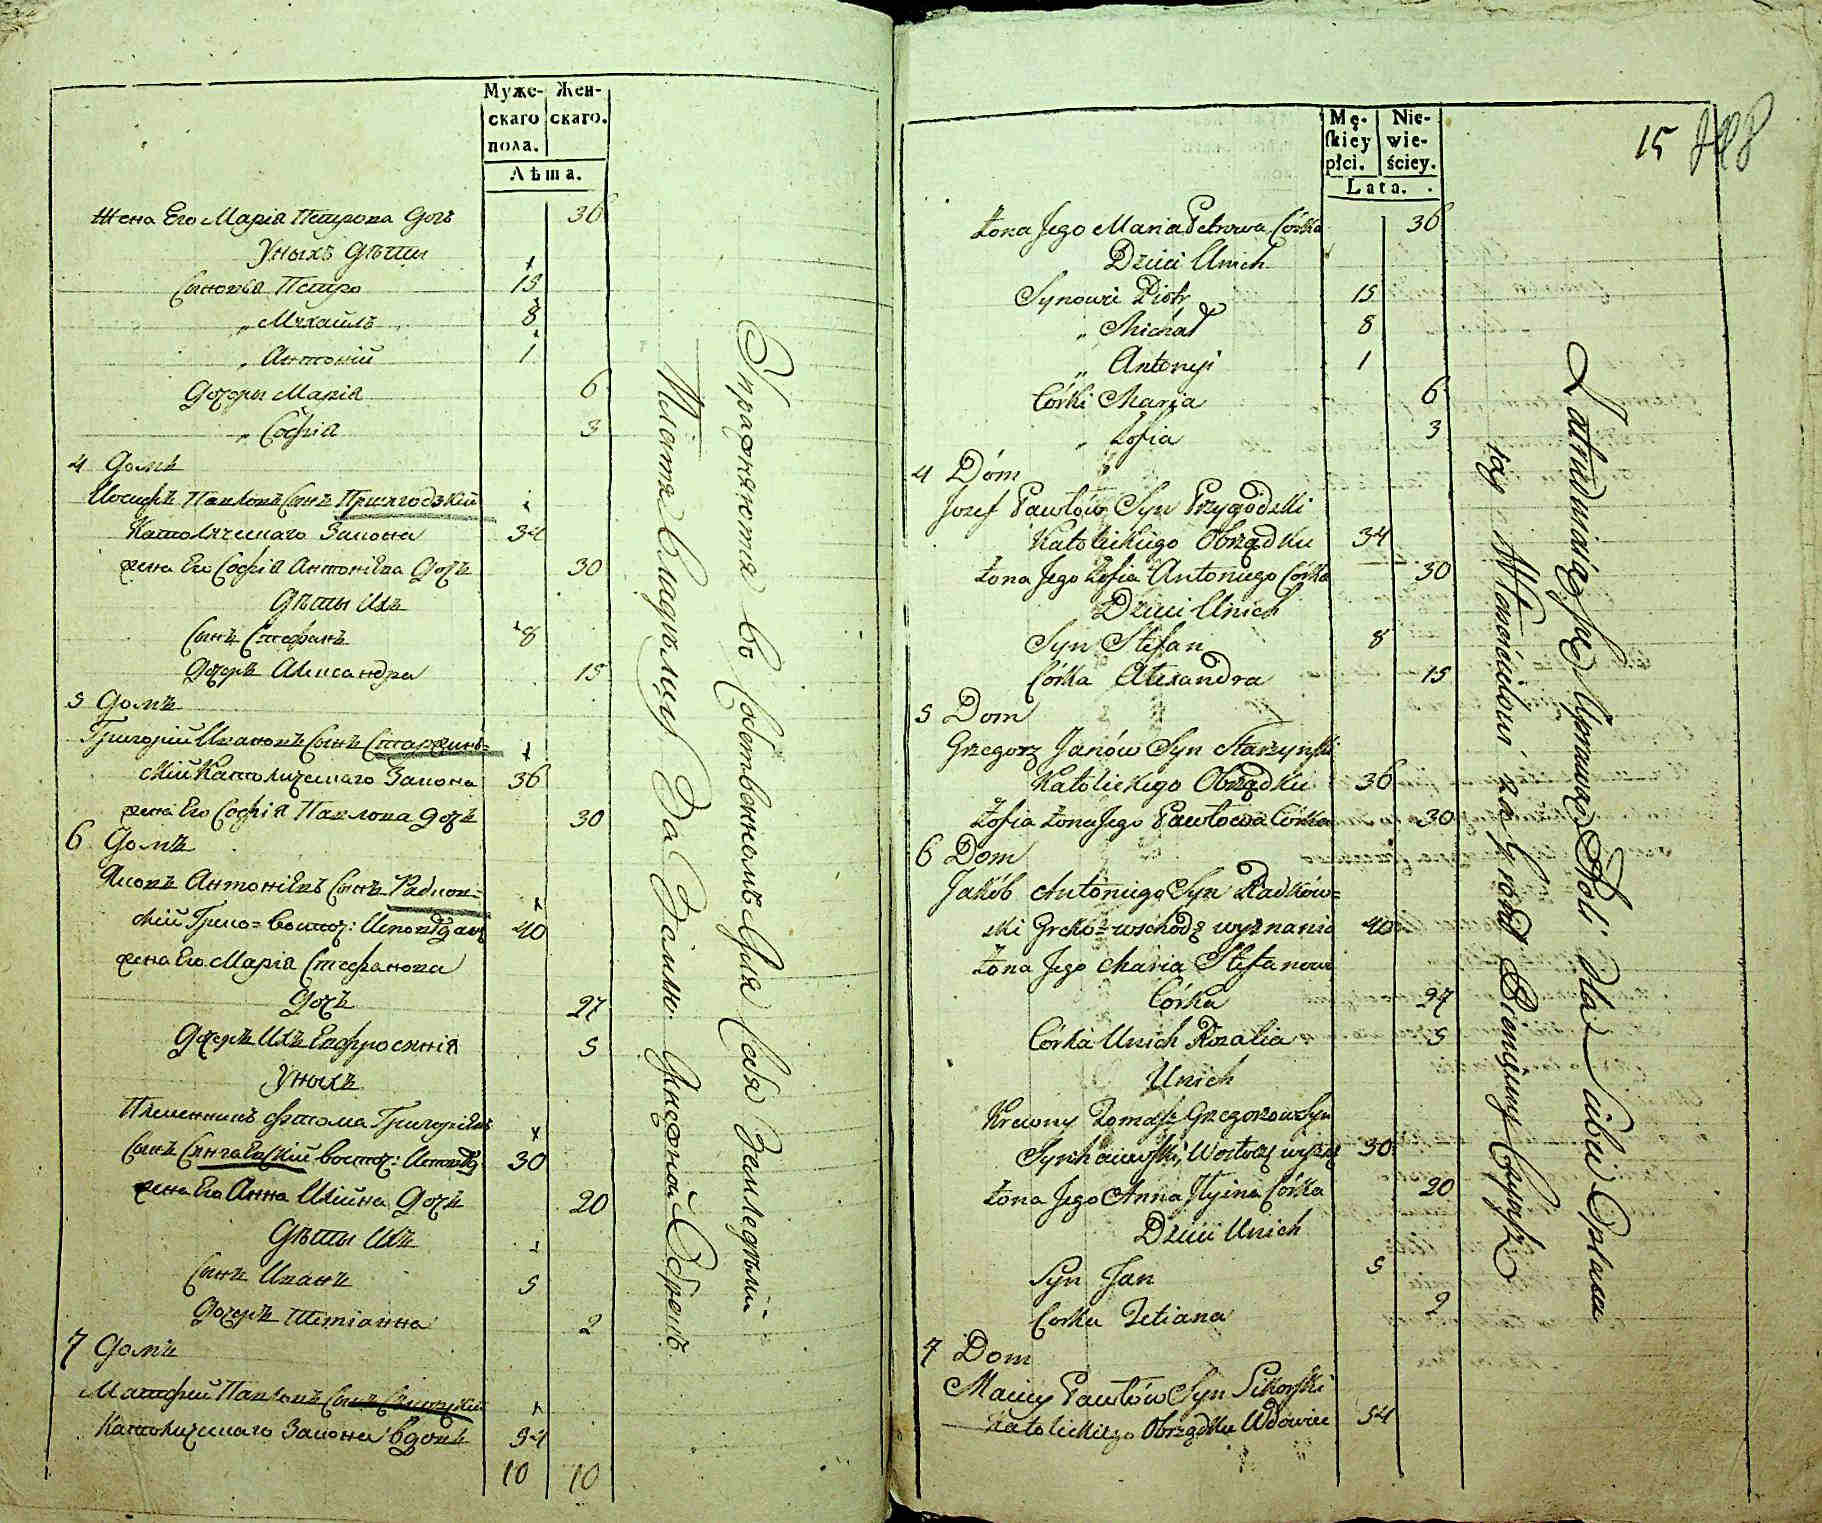 Муже-
скаго
пола.
Жен-
скаго.
Лѣта.
Жена Его Марія Петрова Дочь 36
У них дѣти
Сыновья Петро 15
„ Михаилъ 8
„ Антоній 1
Дочери Марія 6
„ Софія 3
4 Домъ
Иосифъ Павловъ Сынъ Пршигодзкій
Католическаго Закона 34
жена Его Софія Антоніева Дочь 30
Дѣти Ихъ
Сынъ Стефанъ 8
Дочерь Александра 15
5 Домъ
Григорій Ивановъ Сынъ Старжинь=
скій Католическаго Закона 36
жена Его Софія Павлова дочь 30
6 Домъ
Яковъ Антоніевъ Сынъ Радков=
скій Греко=восточ: Исповѣдан 40
жена Его Марія Стефанова
Дочь 27
Дочерь Ихъ Евфросинія 5
У нихъ
Племенникъ Фтома Григоріевъ
Сынъ восточ: Исповѣд 30
жена Его Анна Илійна Дочь 20
Дѣти Ихъ
Сынъ Иванъ 5
Дочерь Тетіанна 2
7 Домъ
Матфей Павловъ Сынъ
Католическаго Закона вдовъ 54
10 10
Упражняются во Собственномъ для Себя Земледѣліи
Платя Владѣльцу За Землю Чинжовой Оброкъ.
Mę-
ſkiey
płci.
Nie-
wie-
ściey.
Lata.
15
Żona Jego Maria Petrowa Córka 36
Dzieci Unich
Synowie Piotr 15
„ Michał 8
„ Antoniji 1
Córki Marja 6
„ Zofia 3
4 Dom
Jozef Pawłów Syn Przygódzki
Katolickiego Obrządku 34
Żona Jego Zofia Antoniego Córka 30
Dzieci Unich
Syn Stefan 8
Córka Alexandra 15
5 Dom
Grzegorz Janów Syn Starzyński
Katolickiego Obrządku 36
Zofia Żona Jego Pawłowa Córka 30
6 Dom
Jakób Antoniego Syn Radków=
ski Greko=wschodz wyznania 40
Żona Jego Maria Stefanowa
Córka 27
Córka Unich Rozalia 5
Unich
Krewny Tomasz Grzegorzów Syn
30
Żona Jego Anna Ilyina Córka 20
Dzieci Unich
Syn Jan 5
Corka Tetiana 2
7 Dom
Maciey Pawłów Syn Sikorſki
Katolickiego Obrządku Wdowiec 54
Zatrudniaią ſię Uprawą Roli dla Siebie Opłaca
iąc Włościcielowi za Grunt Pieniężny Czynsz